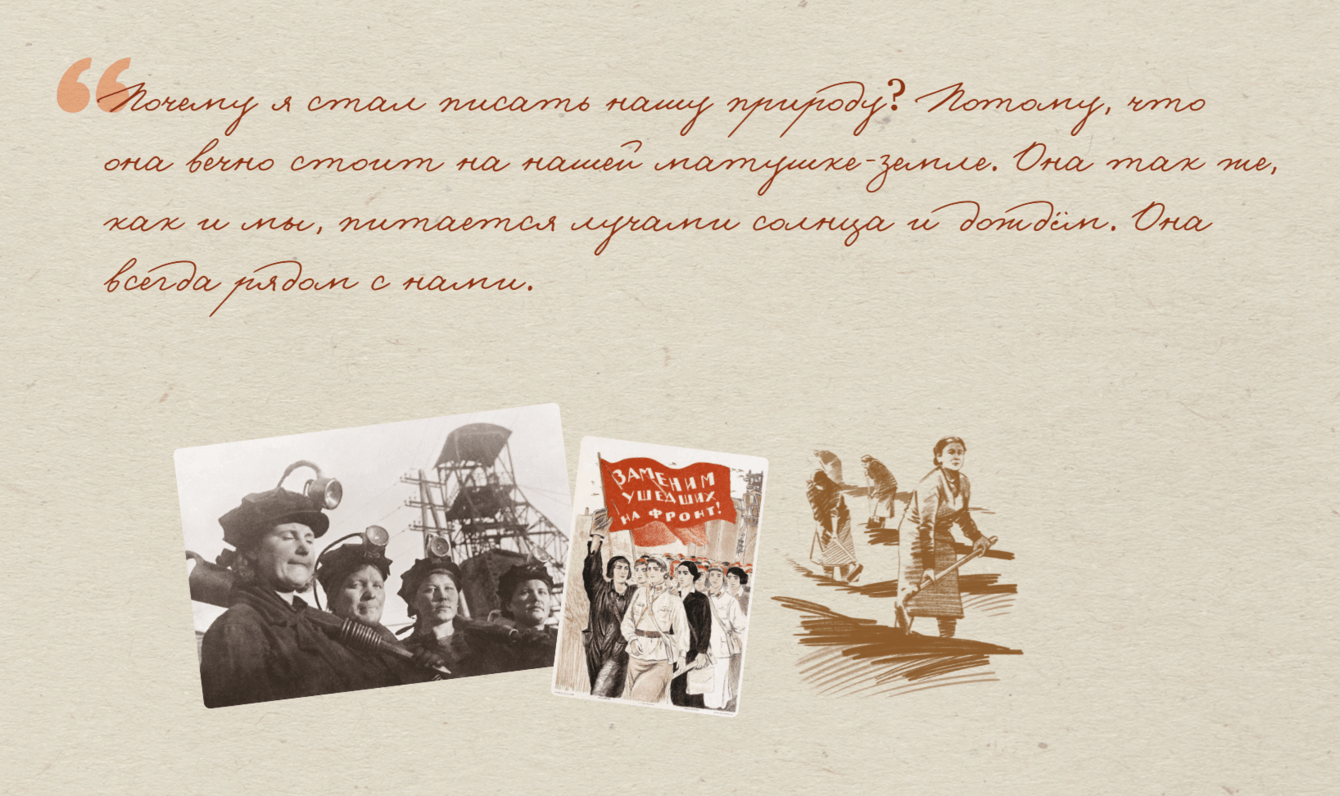 “Почему я стал писать нашу природу? Потому, что
она вечно стоит на нашей матушке-земле. Она так же,
как и мы, питается лучами солнца и дождём. Она
всегда рядом с нами.
ЗАМЕНИМ
УШЕДШИХ
НА ФРОНТ!